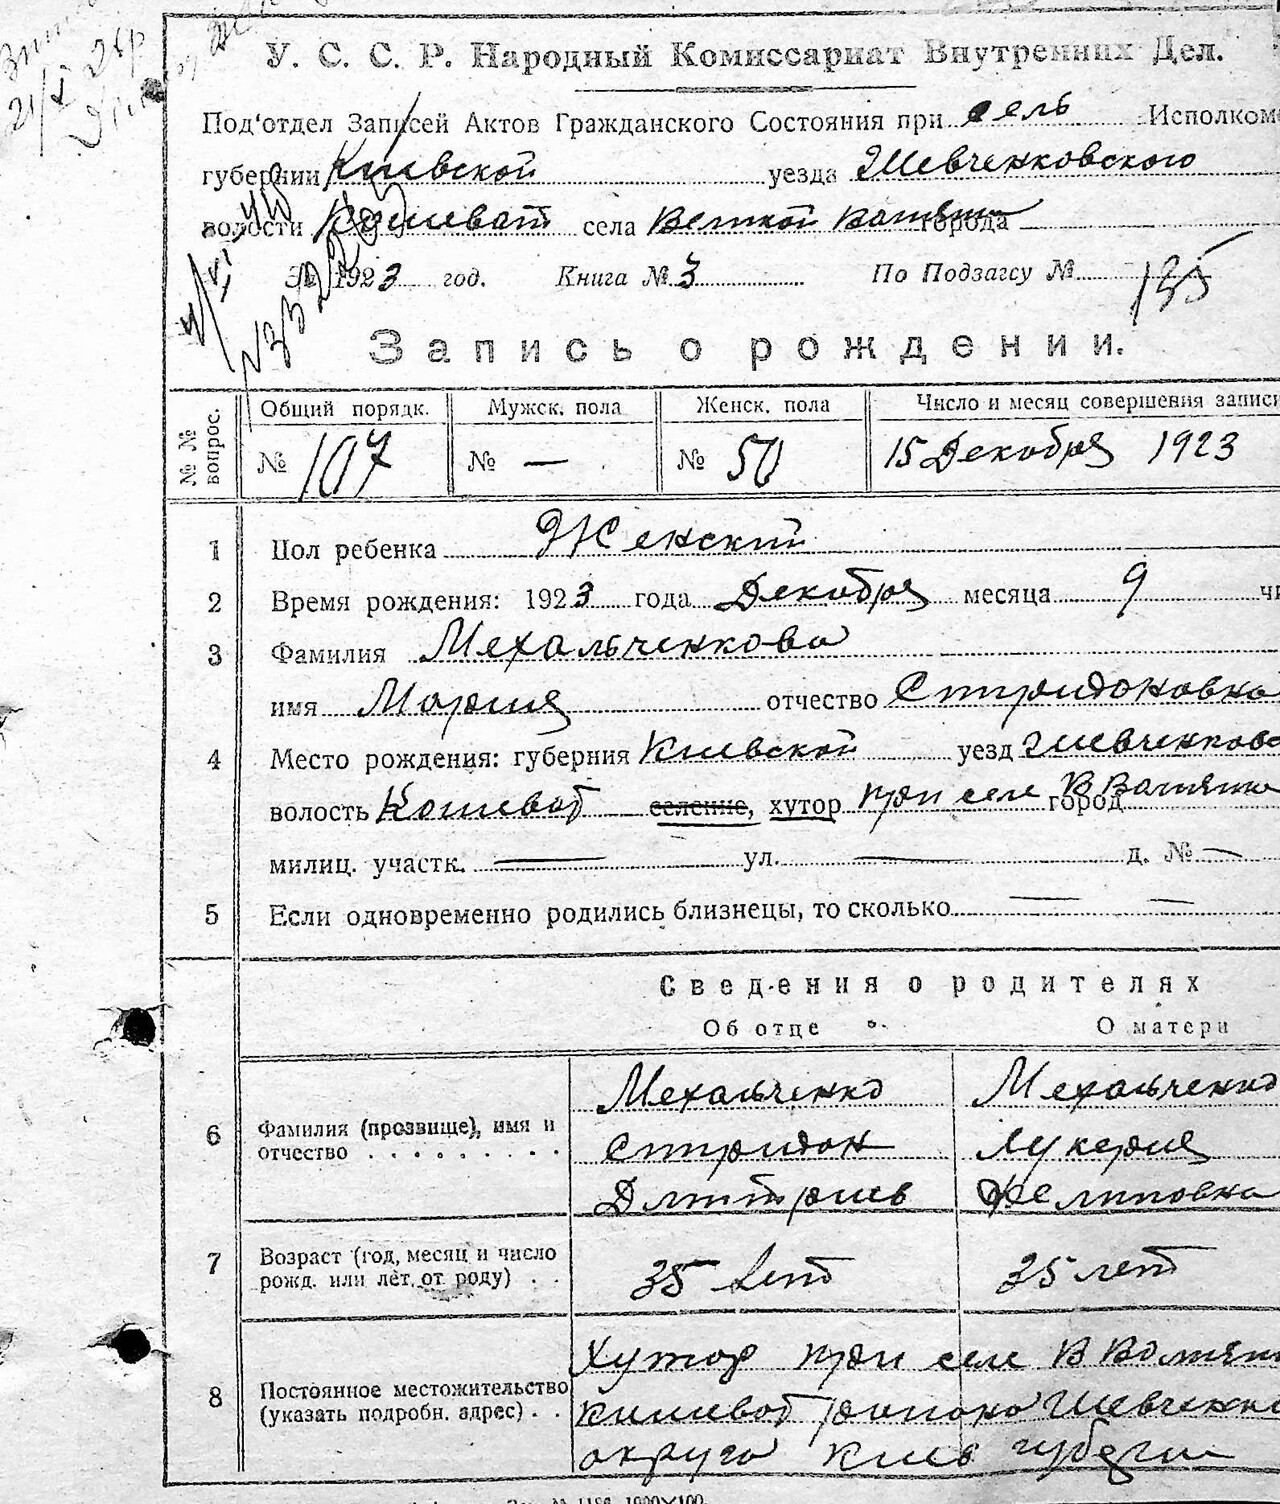 У. С. С. Р. Народный Комиссариат Внутренних Дел.
Под'отдел Записей Актов Гражданского Состояния при сель Исполком
губернии Киевской уезда Шевченковского
волости Кошеват села Великой Вовнянки города
№ 1923 год. Книга № 3 По Подзагсу № 135
Запись о рождении.
№ № вопрос.
Общий порядк. Мужск. пола Женск. пола Число и месяц совершения записи
№ 107 № — № 50 15 Декабря 1923
1 Пол ребенка Женский
2 Время рождения: 1923 года Декабря месяца 9 чи
3 Фамилия Мехальченкова
имя Мария отчество Спиридоновна
4 Место рождения: губерния Киевской уезд Шевченковс
волость Кошеват — селение, хутор при селе В Вовнянке город
милиц. участк. — ул. — д. № —
5 Если одновременно родились близнецы, то сколько — —
Сведения о родителях
Об отце О матери
6 Фамилия (прозвище), имя и отчество
Мехальченко Мехальченко
Спиридон Лукерия
Дмитриев Филиповна
7 Возраст (год, месяц и число рожд. или лет от роду)
35 лет 35 лет
8 Постоянное местожительство (указать подробн. адрес)
Хутор при селе В Вовнянк
Кошеват района Шевченко
округа Киев губерни